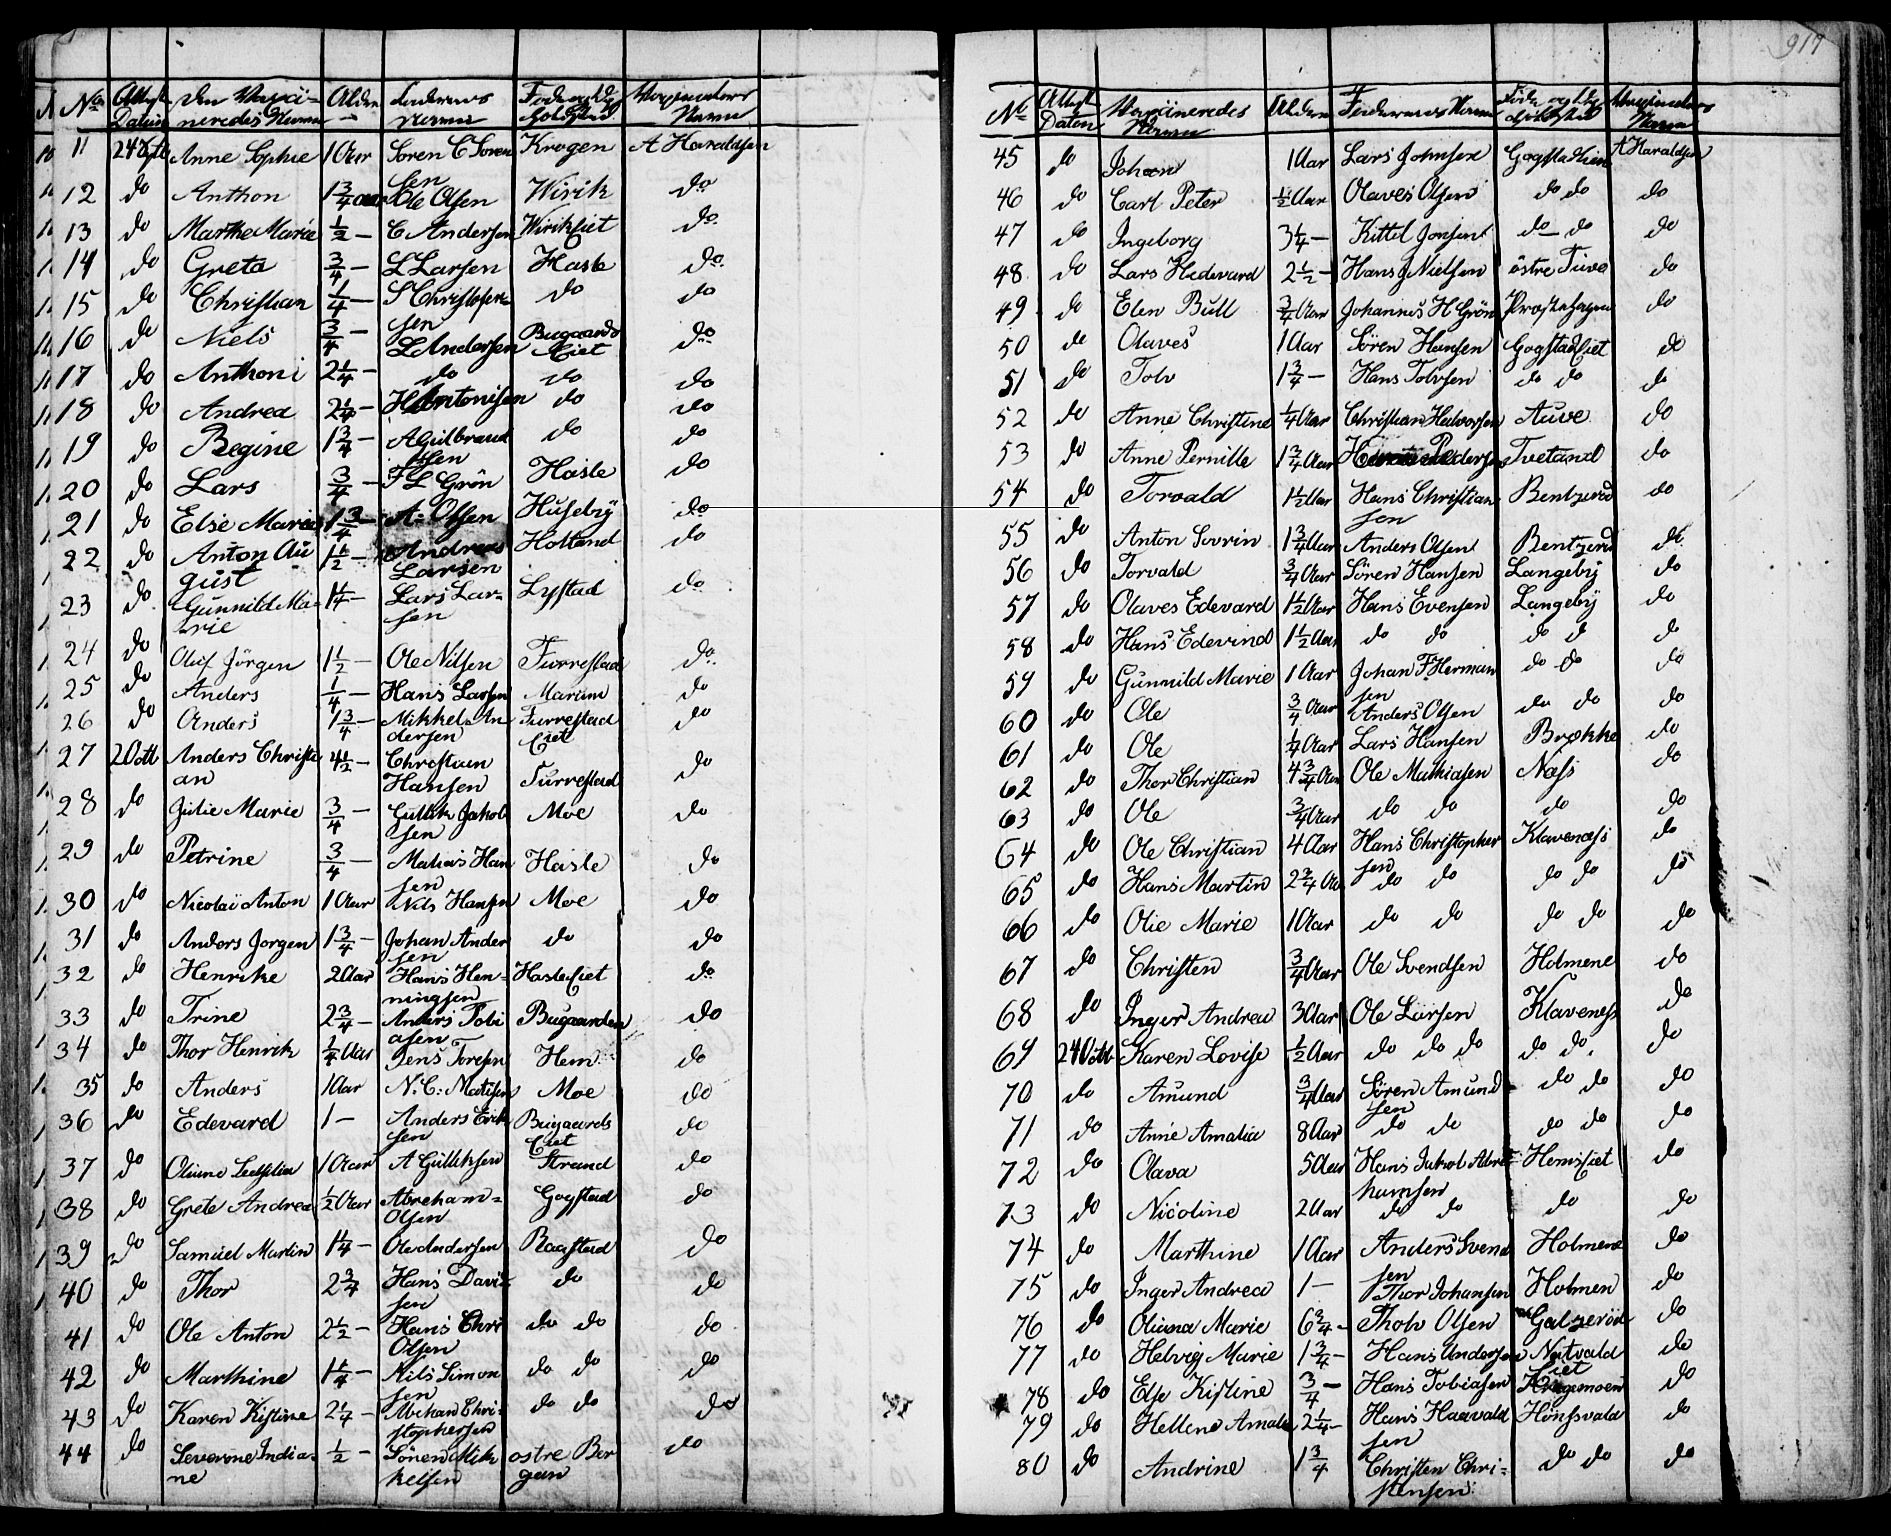 917
No Attest Datum Den Vaxcineredes Navn Alder Faderens Navn Føde og Opholdsted Vaxinateurs Navn
11 24 Anne Sophie 1 Aar Soren C Soren Krogen A Haraldsen
sen
12 do Anthon 1 3/4 Aar Ole Olsen Wirik do
13 do Marthe Marie 1/2 — C Andersen Wirikeiet do
14 do Greta 3/4 — L Larsen Hasle do
15 do Christian 1/4 — S Christofer do do
sen
16 do Niels 3/4 — L Andersen Bugaards do
Eiet
17 do Anthoni 2 1/4 — do do do
18 do Andrea 2 1/4 — H Antonisen do do
19 do Regine 1 3/4 — A Gulbrand do do
sen
20 do Lars 3/4 — F L Grön Hasle do
21 do Else Marie 1 3/4 — A. Olsen Huseby do
22 do Anton Au 1 1/2 — Andreas Holtand do
gust Larsen
23 do Gunnild Ma- 1 1/4 — Lars Lar- Lystad do
rie sen
24 do Oluf Jörgen 1 1/2 — Ole Nilsen Furrestad do
25 do Anders 1/4 — Hans Larsen Marum do
26 do Anders 1 3/4 — Mikkel An Furrestad do
dersen Eiet
27 2 Octb Anders Christi 4 1/2 — Christian
an Hansen Furrestad do
28 do Julie Marie 3/4 — Gullik Jakob Moe do
sen
29 do Petrine 3/4 — Matias Han Hasle do
sen
30 do Nicolai Anton 1 Aar Nils Hansen Moe do
31 do Anders Jorgen 1 3/4 — Johan Ander do do
sen
32 do Henrike 2 Aar Hans Hen- Hasleeiet do
ningsen
33 do Trine 2 3/4 — Anders Tobi Bugaarden do
asen
34 do Thor Henrik 1/4 Aar Jens Toresen Hem do
35 do Anders 1 Aar N. C. Matisen Moe do
36 do Edevard 1 — Anders Erik Bugaards do
sen Eiet
37 do Oliane 1 Aar A Gulliksen Strand do
38 do Grete Andrea 1/2 Aar Abreham- Gogstad do
Olsen
39 do Samuel Martin 1 1/4 — Ole Andersen Raastad do
40 do Thor 2 3/4 Hans Davi- do do
sen
41 do Ole Anton 2 1/2 — Hans Chri do do do
Olsen
42 do Marthine 1 1/4 — Nils Simon do do do
sen
43 do Karen Kistine 2 1/4 — Chri- do do do
stophersen
44 do Severine India- 1/2 — Sören Mik ostre Ber do
ne kelsen gan
No Attest Daten Vaxcineredes Navn Alder Faderenes Navn Føde og Opholdsted Vaxinators Navn
45 do Johan 1 Aar Lars Johnsen Gogstad A Haraldsen
46 do Carl Peter 1/2 Aar Olaves Olsen do do do
47 do Ingeborg 3 1/4 — Kittel Jonsen do do do
48 do Lars Hedevard 2 1/2 — Hans J Nielsen östre Tuve do
49 do Elen Bull 3/4 Aar Johannes H Grön do
50 do Olaves 1 Aar Sören Hansen Gogstadeiet do
51 do Tolv 1 3/4 — Hans Tolvsen do do do
52 do Anne Christine 1/4 Aar Christian Hedvorsen Auve do
53 do Anne Pernille 1 3/4 Aar Pedersen Tvetand do
54 do Torvald 1 1/2 Aar Hans Christian Bentzerød do
sen
55 do Anton Sovrin 1 3/4 Aar Anders Olsen Bentzerød do
56 do Torvald 3/4 Aar Sören Hansen Langeby do
57 do Olaves Edevard 1 1/2 Aar Hans Evensen Langeby do
58 do Hans Edevind 1 1/2 Aar do do do do do
59 do Gunnild Marie 1 Aar Johan F. Herman do do do
sen
60 do Ole 3/4 Aar Anders Olsen do do do
61 do Ole 1/4 Aar Lars Hansen Brøkke do
62 do Thor Christian 4 3/4 Aar Ole Mathiasen Næss do
63 do Ole 3/4 Aar do do do do
64 do Ole Christian 4 Aar Hans Christopher Klavenæss do
sen
65 do Hans Martin 2 3/4 Aar do do do do do
66 do Olie Marie 1 Aar do do do do do
67 do Christen 3/4 Aar Ole Svendsen Holmene do
68 do Inger Andrea 3 Aar Ole Larsen Klaveness do
69 24 Octb Karen Lovise 1/2 Aar do do do do do. do
70 do Amund 3/4 Aar Sören Amund do do do
sen
71 do Anne Amalia 8 Aar do do do do do
72 do Olava 5 Aar Hans Jakob Abra Hemseiet do
hamsen
73 do Nicoline 2 Aar do do do do
74 do Marthine 1 Aar Anders Svend Holmene do
sen
75 do Inger Andrea 1 — Thor Johansen Holmen do
76 do Oliana Marie 6 3/4 — Tholv Olsen Gatzerød do
77 do Helveg Marie 1 3/4 — Hans Andersen Natvald do
Eiet
78 do Else Kistine 3/4 — Hans Tobiasen do
79 do Hellene Amalia 2 1/4 — Hans Haavald Hönsvald do
sen
80 do Andrine 1 3/4 Christen Chri- do do do
stensen